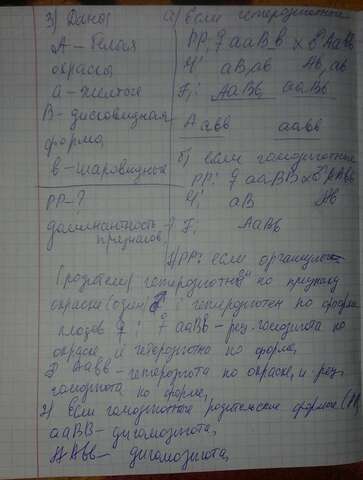 3) Дано:
А – белая
окраска
а – желтые
В – дисковидная
форма
в – шаровидные
РР – ?
доминантность
признаков
а) если гетерозиготные
РР: ♀ ааВв × ♂ Аавв
аВ, ав Ав, ав
F₁: АаВв, ааВв
Аавв аавв
б) если гомозиготные
РР: ♀ ааВВ × ♂ ААвв
аВ Ав
F₁ АаВв
РР: если организмы
(родители) гетерозиготны по признаку
окраски (один) ♂; гетерозиготен по форме
плодов ♀: ♀ ааВв – рец. гомозигота по
окраске и гетерозигота по форме,
Аавв – гетерозигота по окраске, и рец.
гомозигота по форме,
2) Если гомозиготные родительские формы
ааВВ – дигомозигота,
ААвв – дигомозигота,